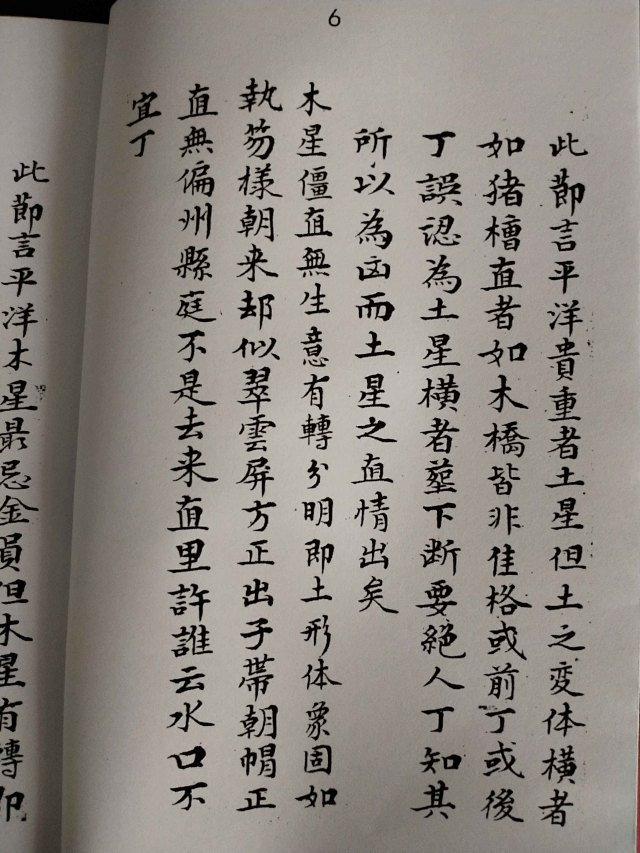 6
此節言平洋貴重者土星但土之変体橫者
如猪槽直者如木橋皆非佳格或前丁或後
丁誤認為土星橫者塟下断要絕人丁知其
所以為凶而土星之直情出矣
木星僵直無生意有轉分明即土形体象固如
執笏樣朝来却似翠雲屏方正出子帯朝帽正
直無偏州縣庭不是去来直里許誰云水口不
宜丁
此節言平洋木星最忌金損但木星有轉卯